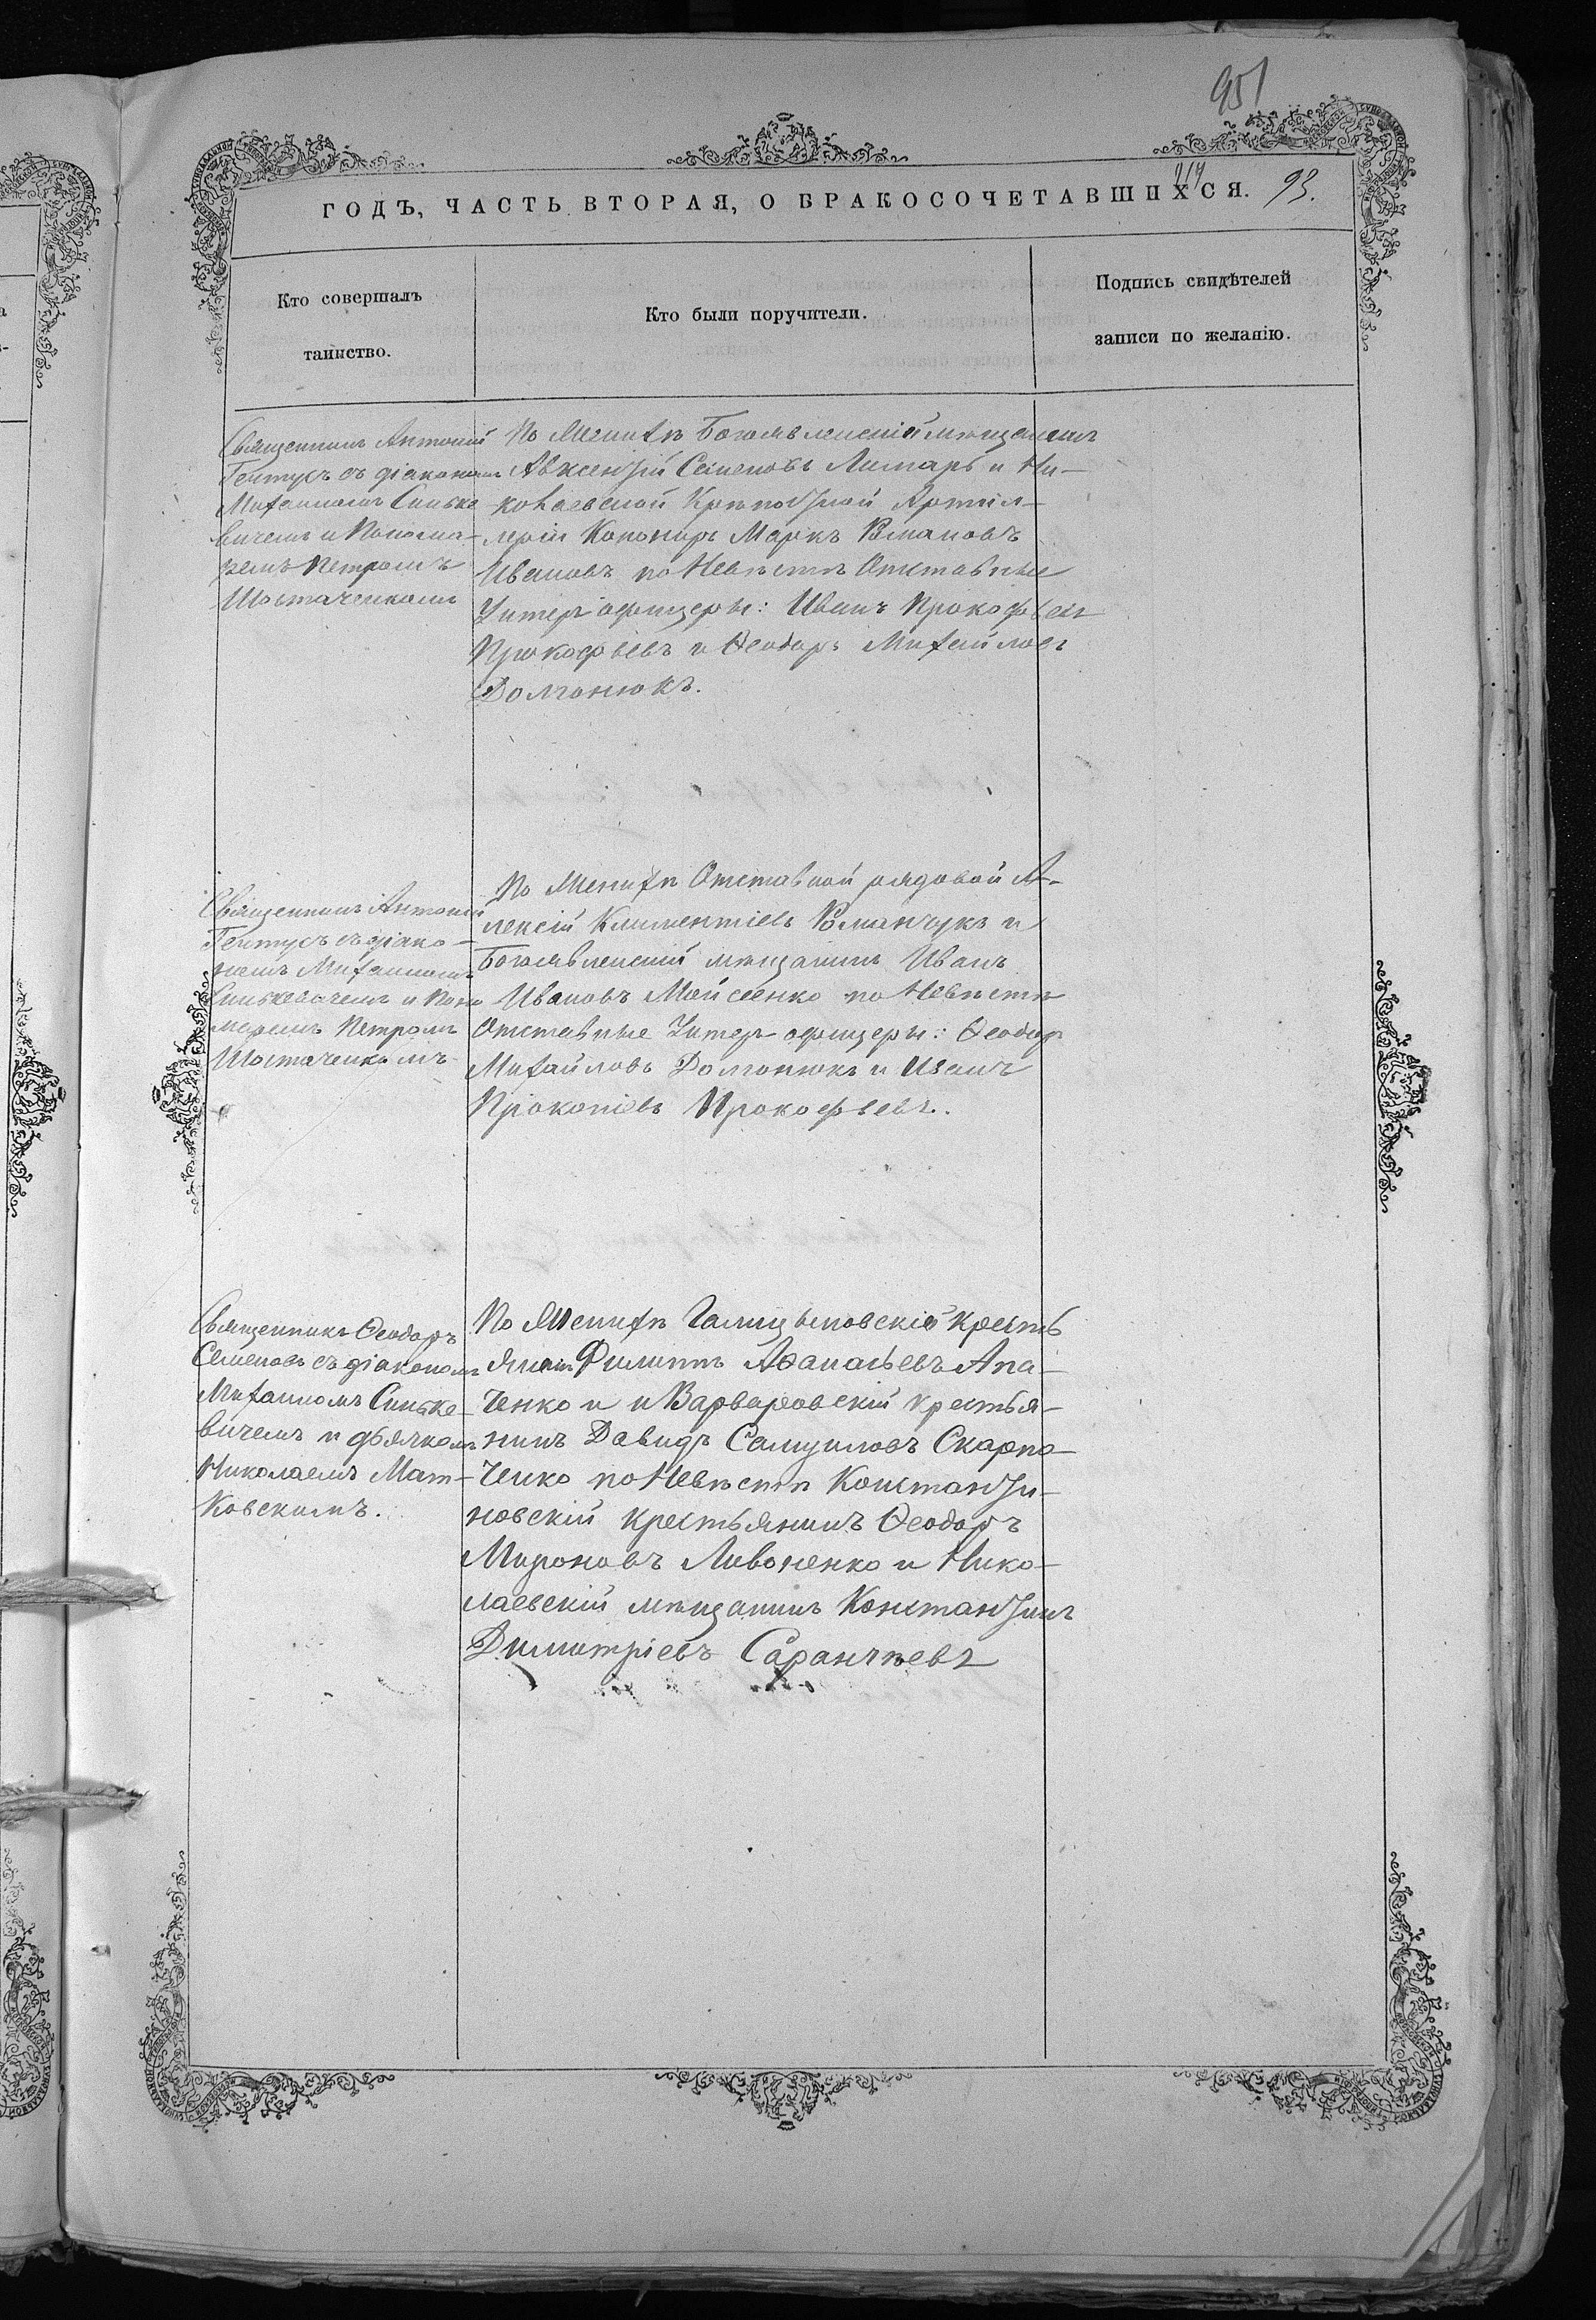 951
919
ГОДЪ, ЧАСТЬ ВТОРАЯ, О БРАКОСОЧЕТАВШИХСЯ. 93.
Кто совершалъ
таинство.
Кто были поручители.
Подпись свидѣтелей
записи по желанію.
Священникъ Антоній
Гентукъ съ діакономъ
Михаиломъ Синьке
вичемъ и Понома-
ремъ Петромъ
Шостаченкомъ
По Женихѣ Богоявленскій мѣщанинъ
Авксентій Семеновъ Лимарь и Ни-
колаевской Крѣпостной Артил-
леріи Канониръ Маркъ Романовъ
Ивановъ по Невѣстѣ Отставные
Унтеръ офицеры: Иванъ Прокофьев
Прокофьевъ и Ѳеодоръ Михайловъ
Долгонюкъ.
Священникъ Антоній
Гентукъ съ діако-
номъ Михаиломъ
Синькевичемъ и Поно
маремъ Петромъ
Шостаченкомъ
По Женихѣ Отставной рядовой А-
лексій Климентіевъ Романчукъ и
Богоявленскій мѣщанинъ Иванъ
Ивановъ Мойсеенко по Невѣстѣ
Отставные Унтеръ-офицеры: Ѳеодоръ
Михайловъ Долгонюкъ и Иванъ
Прокопіевъ Прокофьевъ.
Священникъ Ѳеодоръ
Семеновъ съ діакономъ
Михаиломъ Синьке-
вичемъ и дьячкомъ
Николаемъ Мат-
ковскимъ.
По Женихѣ Галицыновскій кресть
янинъ Филиппъ Аѳанасьевъ Апа-
ченко и и Варваровскій крестья-
нинъ Давидъ Самуиловъ Скарпо-
ченко по Невѣстѣ Константи-
новскій крестьянинъ Ѳеодоръ
Мироновъ Ливоненко и Нико-
лаевскій мѣщанинъ Константинъ
Димитріевъ Саранчѣевъ